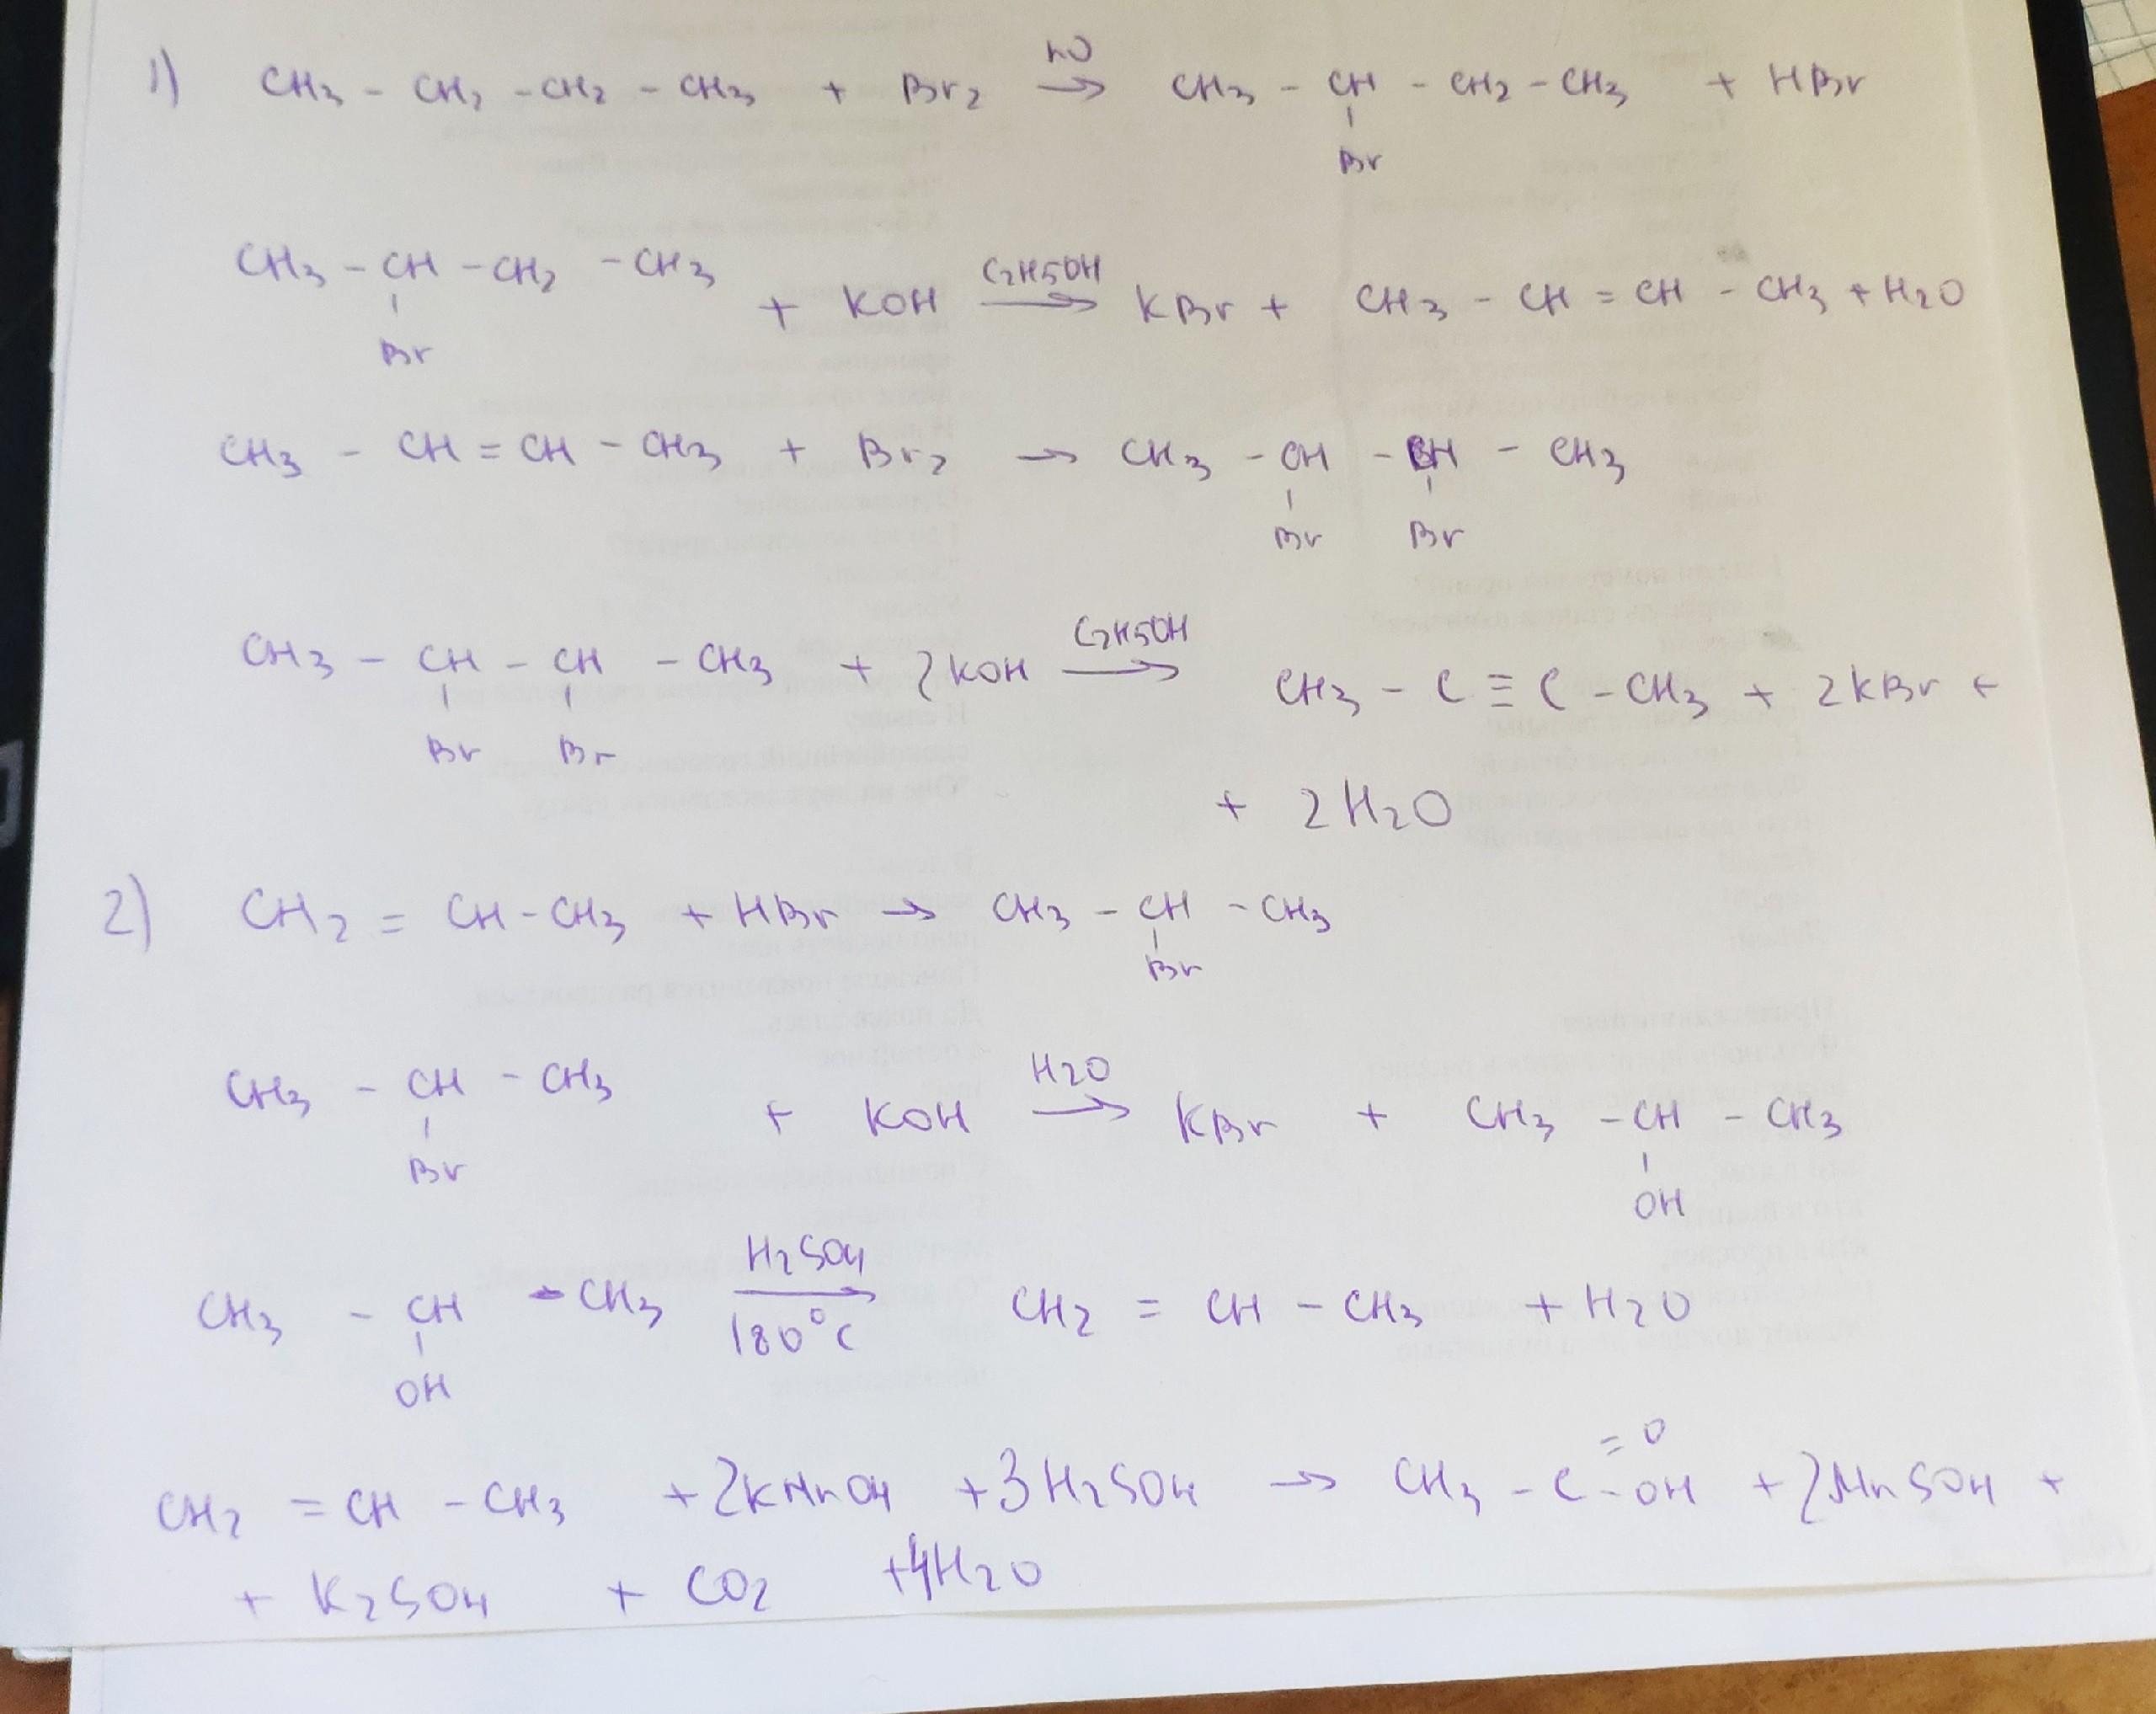 1) CH3 - CH2 - CH2 - CH3 + Br2 hν → CH3 - CH - CH2 - CH3 + HBr
Br
CH3 - CH - CH2 - CH3 + KOH C2H5OH → KBr + CH3 - CH = CH - CH3 + H2O
Br
CH3 - CH = CH - CH3 + Br2 → CH3 - CH - CH - CH3
Br Br
CH3 - CH - CH - CH3 + 2KOH C2H5OH → CH3 - C ≡ C - CH3 + 2KBr +
Br Br
+ 2H2O
2) CH2 = CH - CH3 + HBr → CH3 - CH - CH3
Br
CH3 - CH - CH3 + KOH H2O → KBr + CH3 - CH - CH3
Br OH
CH3 - CH - CH3 H2SO4 → 180°C CH2 = CH - CH3 + H2O
OH
CH2 = CH - CH3 + 2KMnO4 + 3H2SO4 → CH3 - C = O - OH + 2MnSO4 +
+ K2SO4 + CO2 + 4H2O